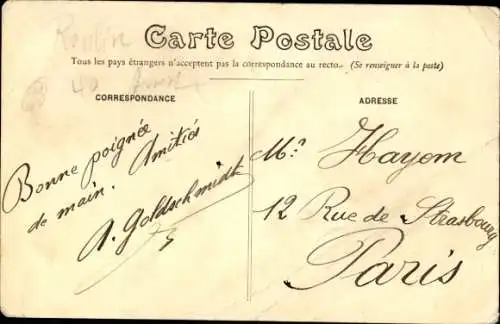 Carte Postale
Tous les pays étrangers n'acceptent pas la correspondance au recto. (Se renseigner à la poste)
CORRESPONDANCE
Bonne poignée
de main. Amitiés
A. Goldschmidt
ADRESSE
Mr. Hayem
12 Rue de Strasbourg
Paris